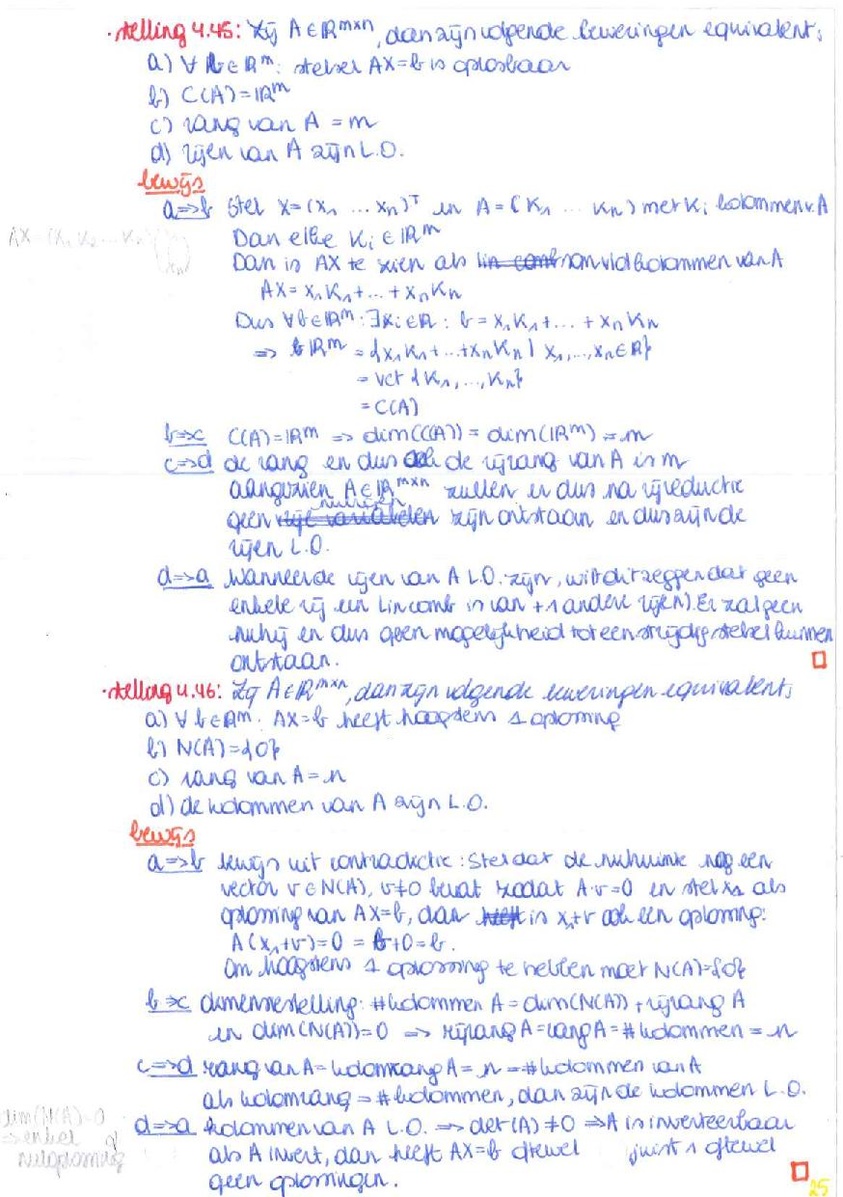 • stelling 4.45: Zij A∈ℝ^{m×n}, dan zijn volgende beweringen equivalent:
a) ∀ b∈ℝ^m: stelsel AX=b is oplosbaar
b) C(A)=ℝ^m
c) rang van A = m
d) rijen van A zijn L.O.
bewijs
a=>b Stel X=(x_1 ... x_n)^T en A=(K_1 ... K_n) met K_i kolommen v. A
Dan elke K_i∈ℝ^m
Dan is AX te zien als som vld kolommen van A
AX = x_1K_1+...+x_nK_n
Dus ∀b∈ℝ^m: ∃x_i∈ℝ: b = x_1K_1+...+x_nK_n
=> ℝ^m = {x_1K_1+...+x_nK_n | x_1,...,x_n∈ℝ}
= vct {K_1,...,K_n}
= C(A)
b=>c C(A)=ℝ^m => dim(C(A)) = dim(ℝ^m) = m
c=>d de rang en dus ook de rijrang van A is m
aangezien A∈ℝ^{m×n} zullen er dus na rijreductie
geen nulrijen zijn ontstaan en dus zijn de
rijen L.O.
d=>a Wanneer de rijen van A L.O. zijn, wilt dit zeggen dat geen
enkele rij een lin comb is van +1 andere rijen). Er zal geen
nulrij en dus geen mogelijkheid tot een strijdig stelsel kunnen
ontstaan.
• stelling 4.46: Zij A∈ℝ^{m×n}, dan zijn volgende beweringen equivalent:
a) ∀ b∈ℝ^m: AX=b heeft hoogstens 1 oplossing
b) N(A)={0}
c) rang van A = n
d) de kolommen van A zijn L.O.
bewijs
a=>b bewijs uit contradictie: Stel dat de nulruimte nog een
vector v∈N(A), v≠0 bevat zodat A·v=0 en stel x_1 als
oplossing van AX=b, dan is x_1+v ook een oplossing:
A(x_1+v)=0 = b+0=b.
Om hoogstens 1 oplossing te hebben moet N(A)={0}
b=>c dimensiestelling: #kolommen A = dim(N(A)) + rijrang A
en dim(N(A))=0 => rijrang A = rang A = #kolommen = n
c=>d rang van A = kolomrang A = n = #kolommen van A
als kolomrang = #kolommen, dan zijn de kolommen L.O.
dim(N(A))=0
=> enkel
nuloplossing
d=>a kolommen van A L.O. => det(A) ≠0 => A is inverteerbaar
als A invert, dan heeft AX=b ofwel juist 1 ofwel
geen oplossingen.
25